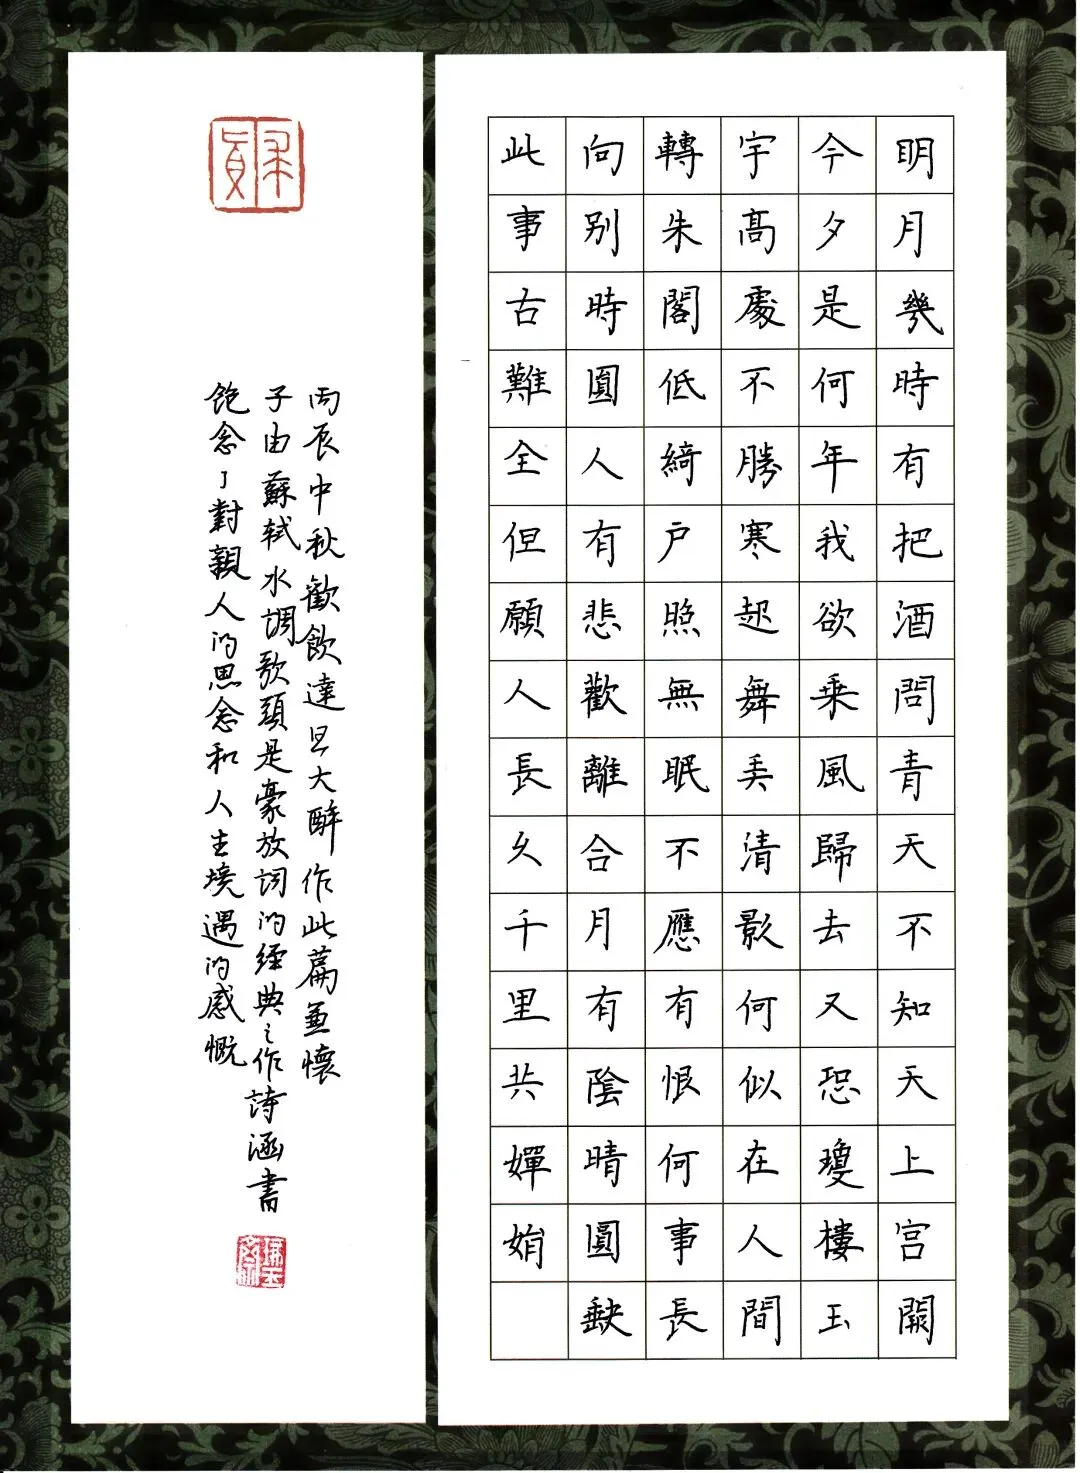 明月幾時有把酒問青天不知天上宫闕
今夕是何年我欲乘風歸去又恐瓊樓玉
宇高處不勝寒起舞弄清影何似在人間
轉朱閣低綺户照無眠不應有恨何事長
向别時圓人有悲歡離合月有陰晴圓缺
此事古難全但願人長久千里共嬋娟
丙辰中秋歡飲達旦大醉作此篇兼懷
子由蘇軾水調歌頭是豪放詞的經典之作詩涵書
飽念了對親人的思念和人生境遇的感慨